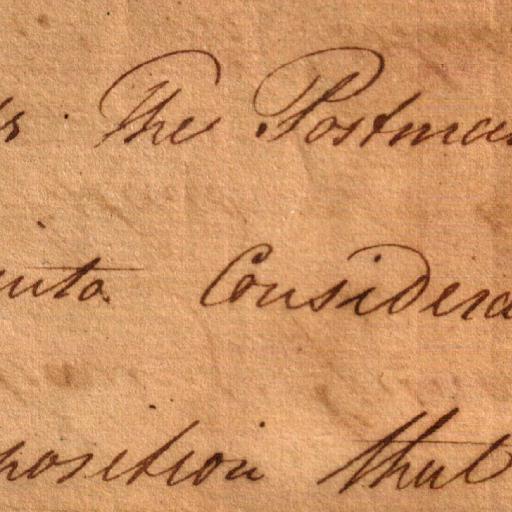 The Postman
into Considera
position that